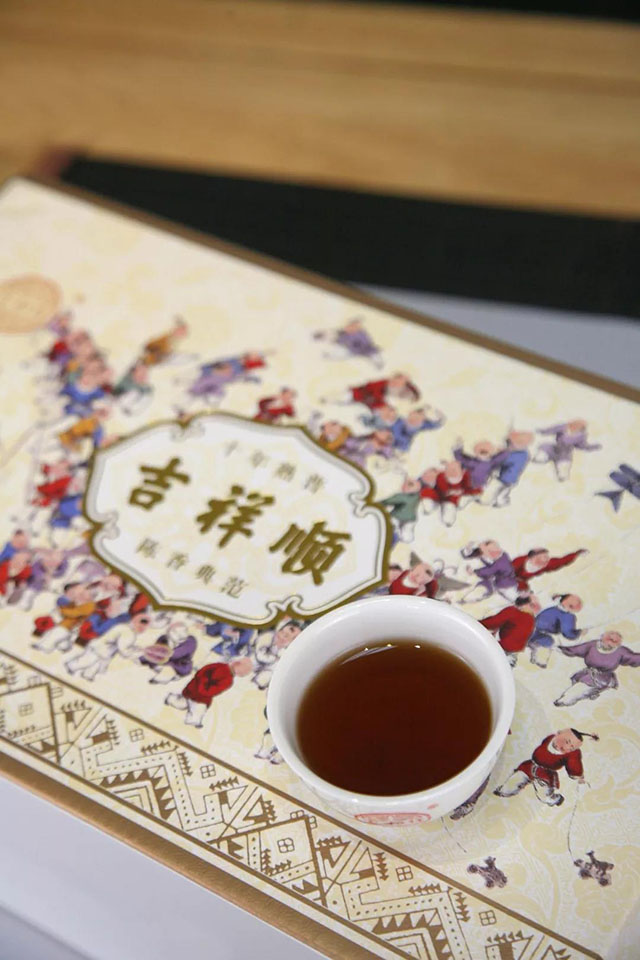 十年熟普
吉祥顺
陈香典范